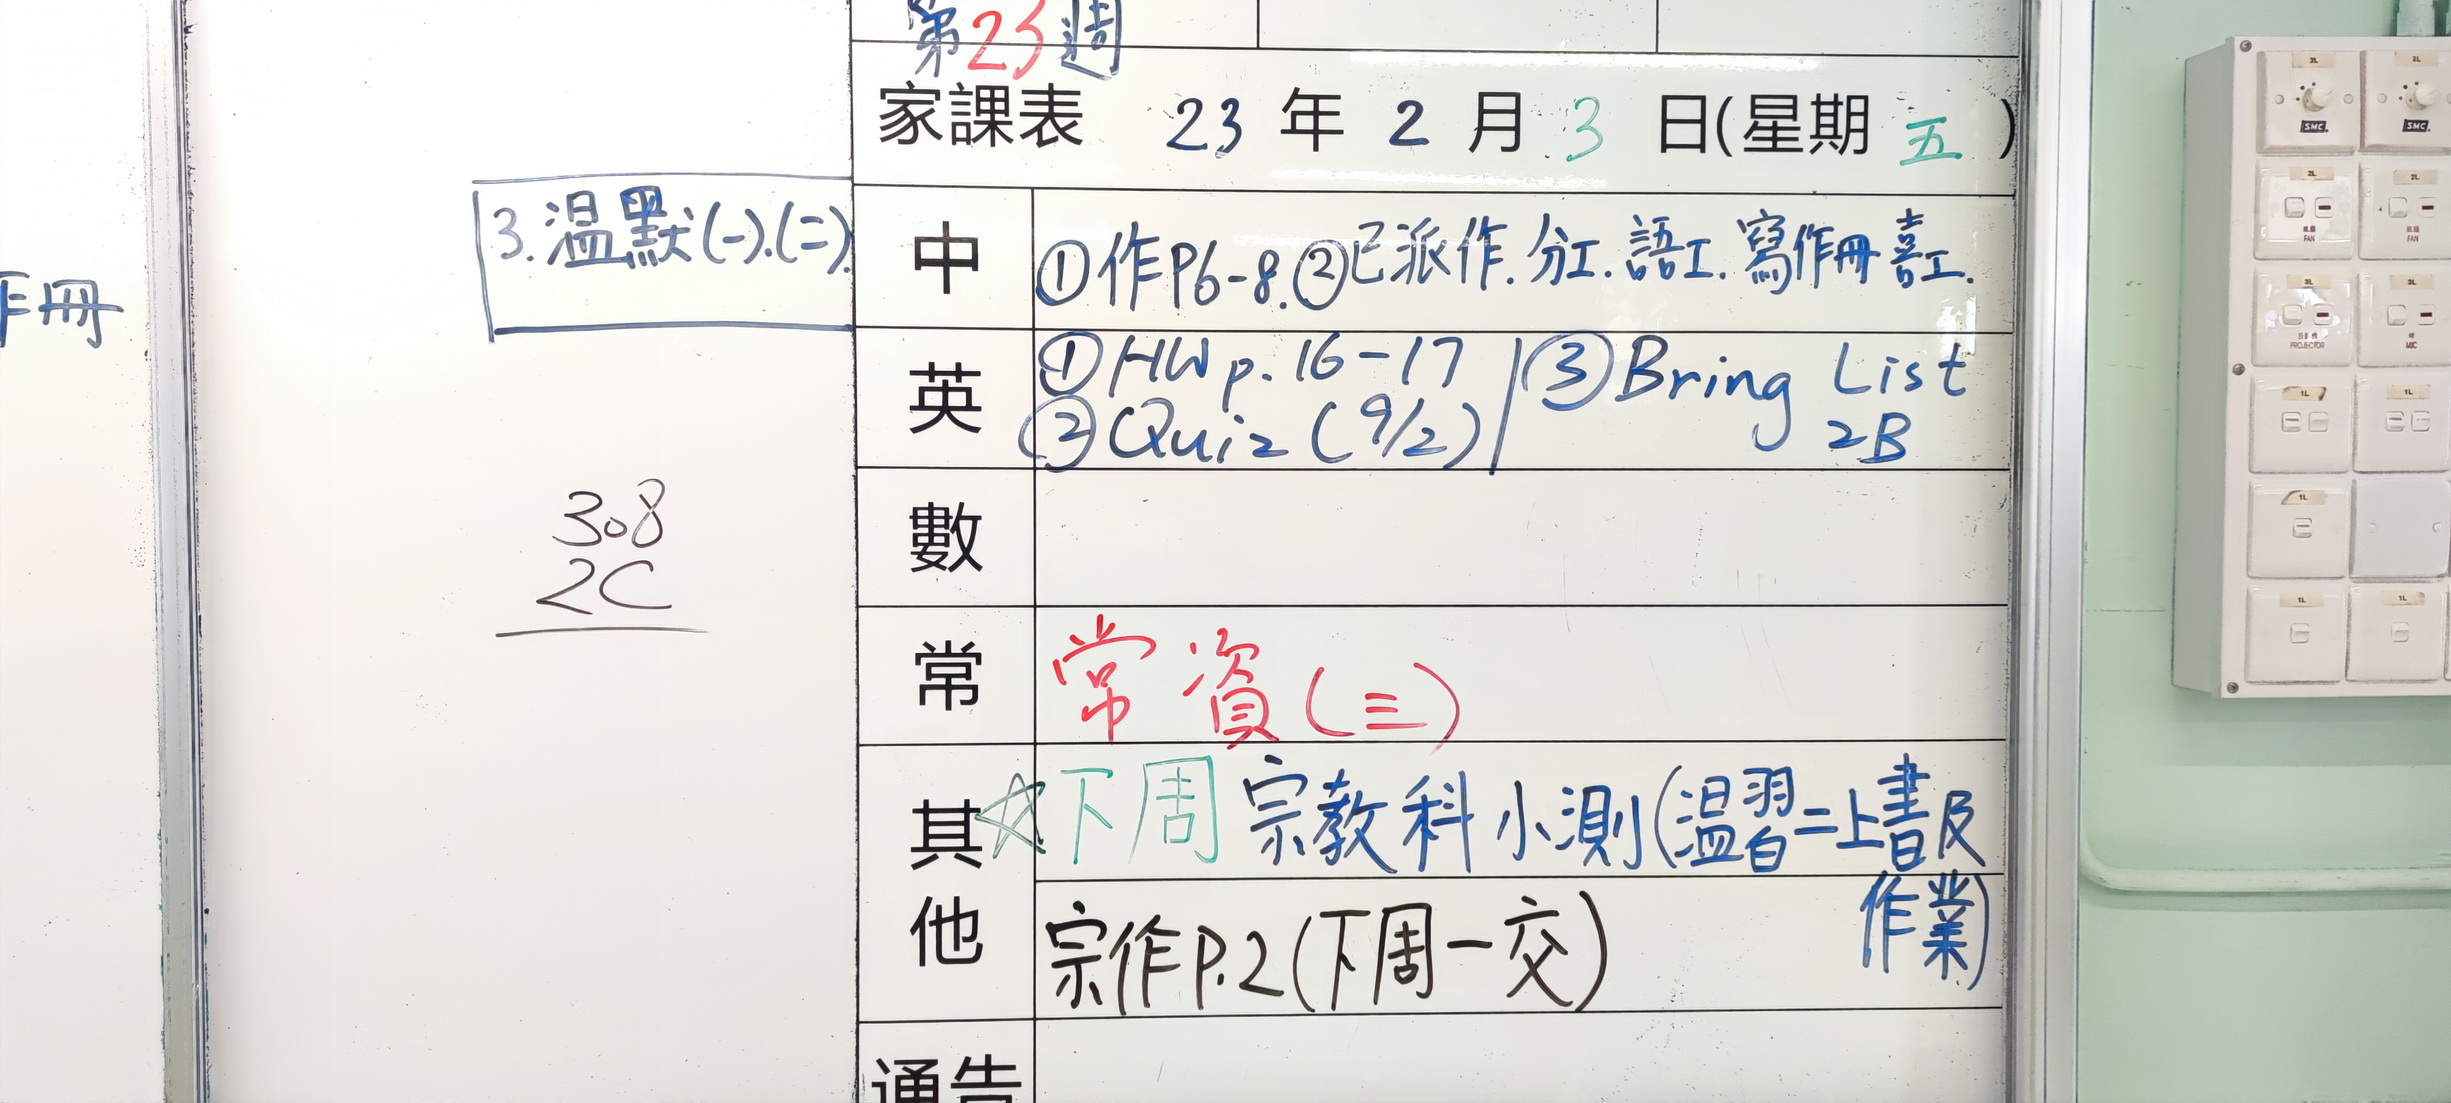 第23週
家課表 23 年 2 月 3 日(星期 五 )
作冊
3.溫默(一).(二).
中 ①作P6-8.②已派作.分工.語工.寫作冊書工.
英 ①HW p.16-17 ③Bring List
②Quiz (9/2) 2B
308
2C
數
常 常資(三)
其他 ☆下周宗教科小測(溫習二上書及
作業)
宗作P.2(下周一交)
通告
2L
2L
SMC
SMC
2L
2L
FAN
FAN
3L
3L
PROJECTOR
MIC
1L
1L
1L
1L
1L